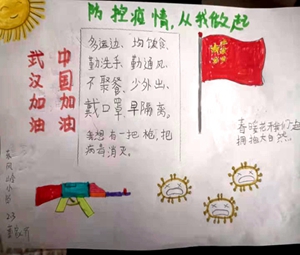 防控疫情，从我做起
武汉加油
中国加油
多运动、均饮食，
勤洗手、勤通风，
不聚餐、少外出，
戴口罩早隔离，
我想有一把枪，把
病毒消灭。
春暖花开我们一起
拥抱大自然。